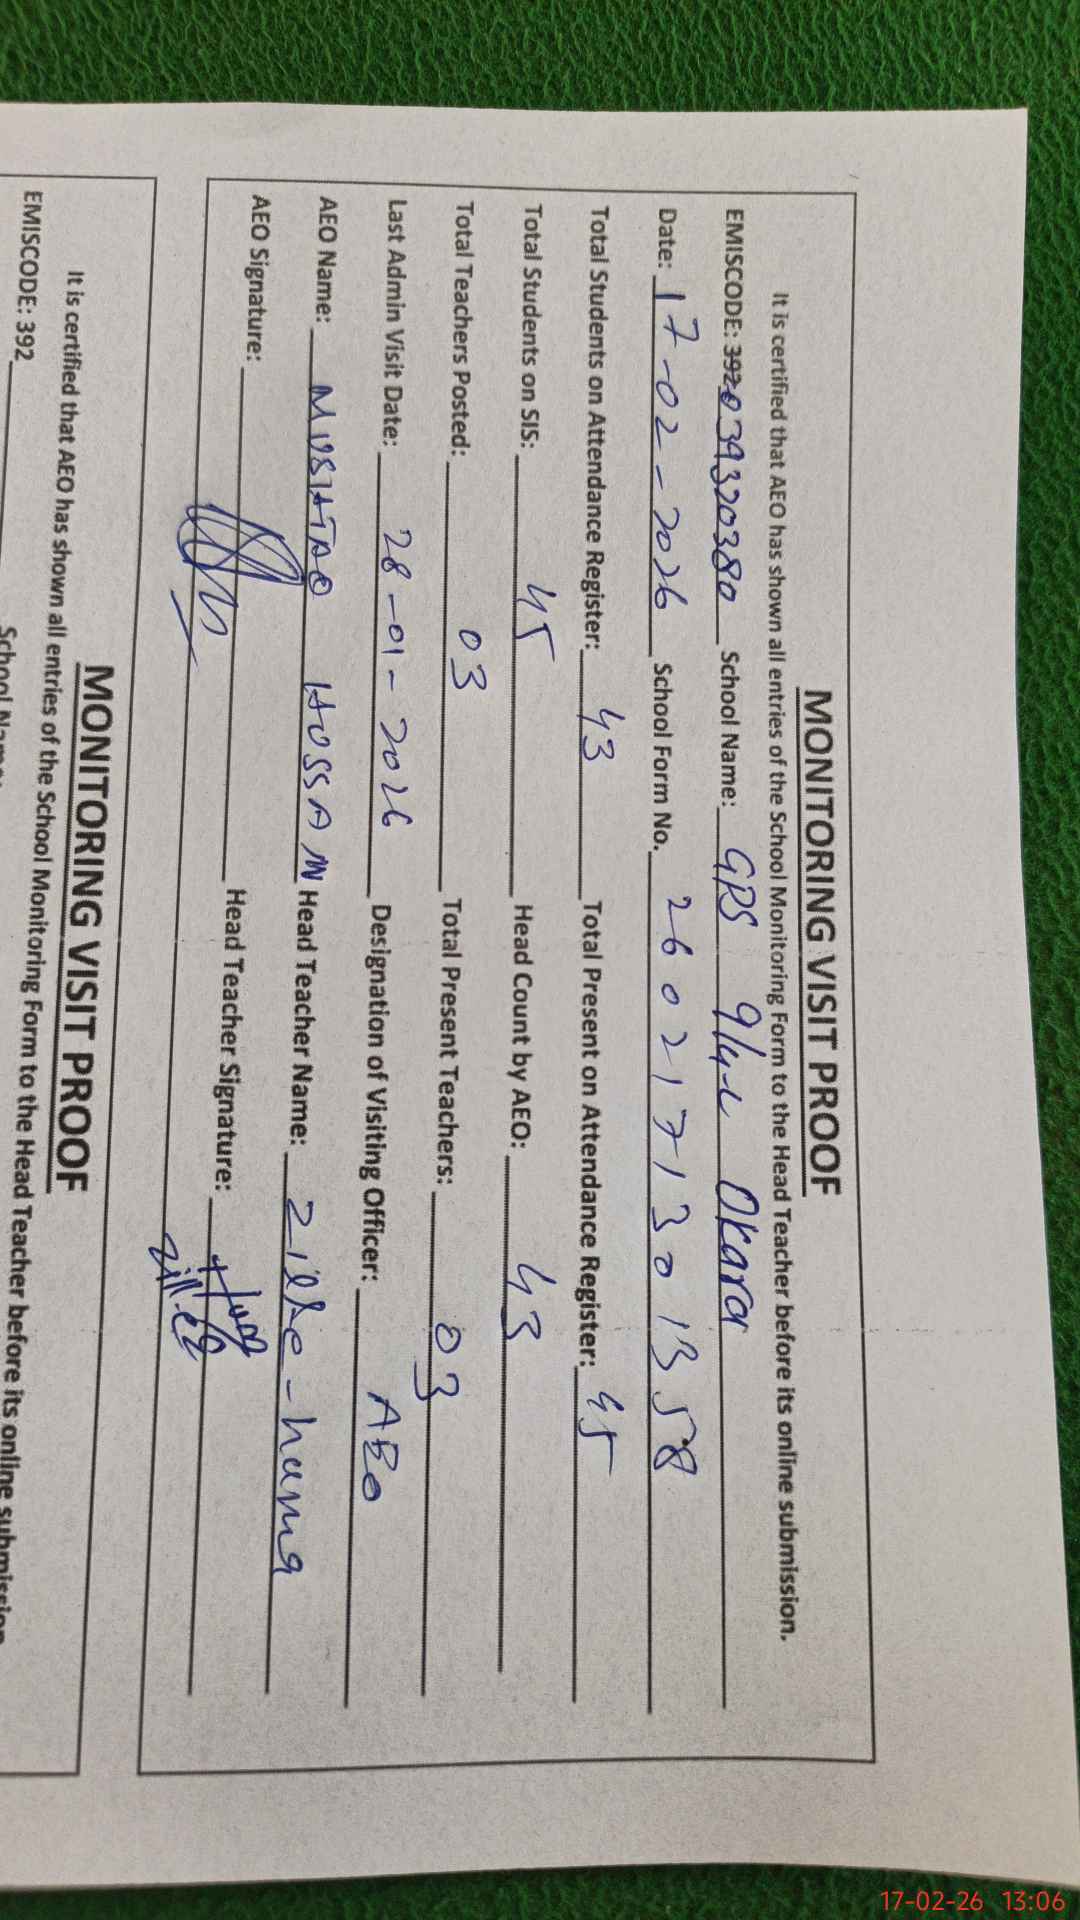 MONITORING VISIT PROOF
It is certified that AEO has shown all entries of the School Monitoring Form to the Head Teacher before its online submission.
EMISCODE: 392 039320380 School Name: GPS 9/4-L Okara
Date: 17-02-2026 School Form No. 2602171301358
Total Students on Attendance Register: 43 Total Present on Attendance Register: 45
Total Students on SIS: 45 Head Count by AEO: 43
Total Teachers Posted: 03 Total Present Teachers: 03
Last Admin Visit Date: 28-01-2026 Designation of Visiting Officer: AEO
AEO Name: Head Teacher Name:
AEO Signature: Head Teacher Signature:
MONITORING VISIT PROOF
It is certified that AEO has shown all entries of the School Monitoring Form to the Head Teacher before its online submission
EMISCODE: 392 School Name:
17-02-26 13:06